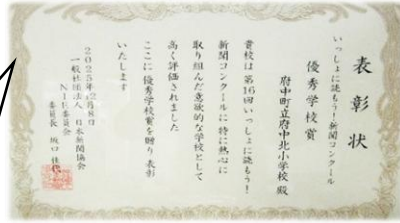 表彰状
いっしょに読もう!新聞コンクール
優秀学校賞
府中町立府中北小学校殿
貴校は第16回いっしょに読もう!
新聞コンクールに特に熱心に
取り組んだ意欲的な学校として
高く評価されました
ここに優秀学校賞を贈り表彰
いたします
2025年12月8日
一般社団法人 日本新聞協会
NIE委員会
委員長 坂口佳代